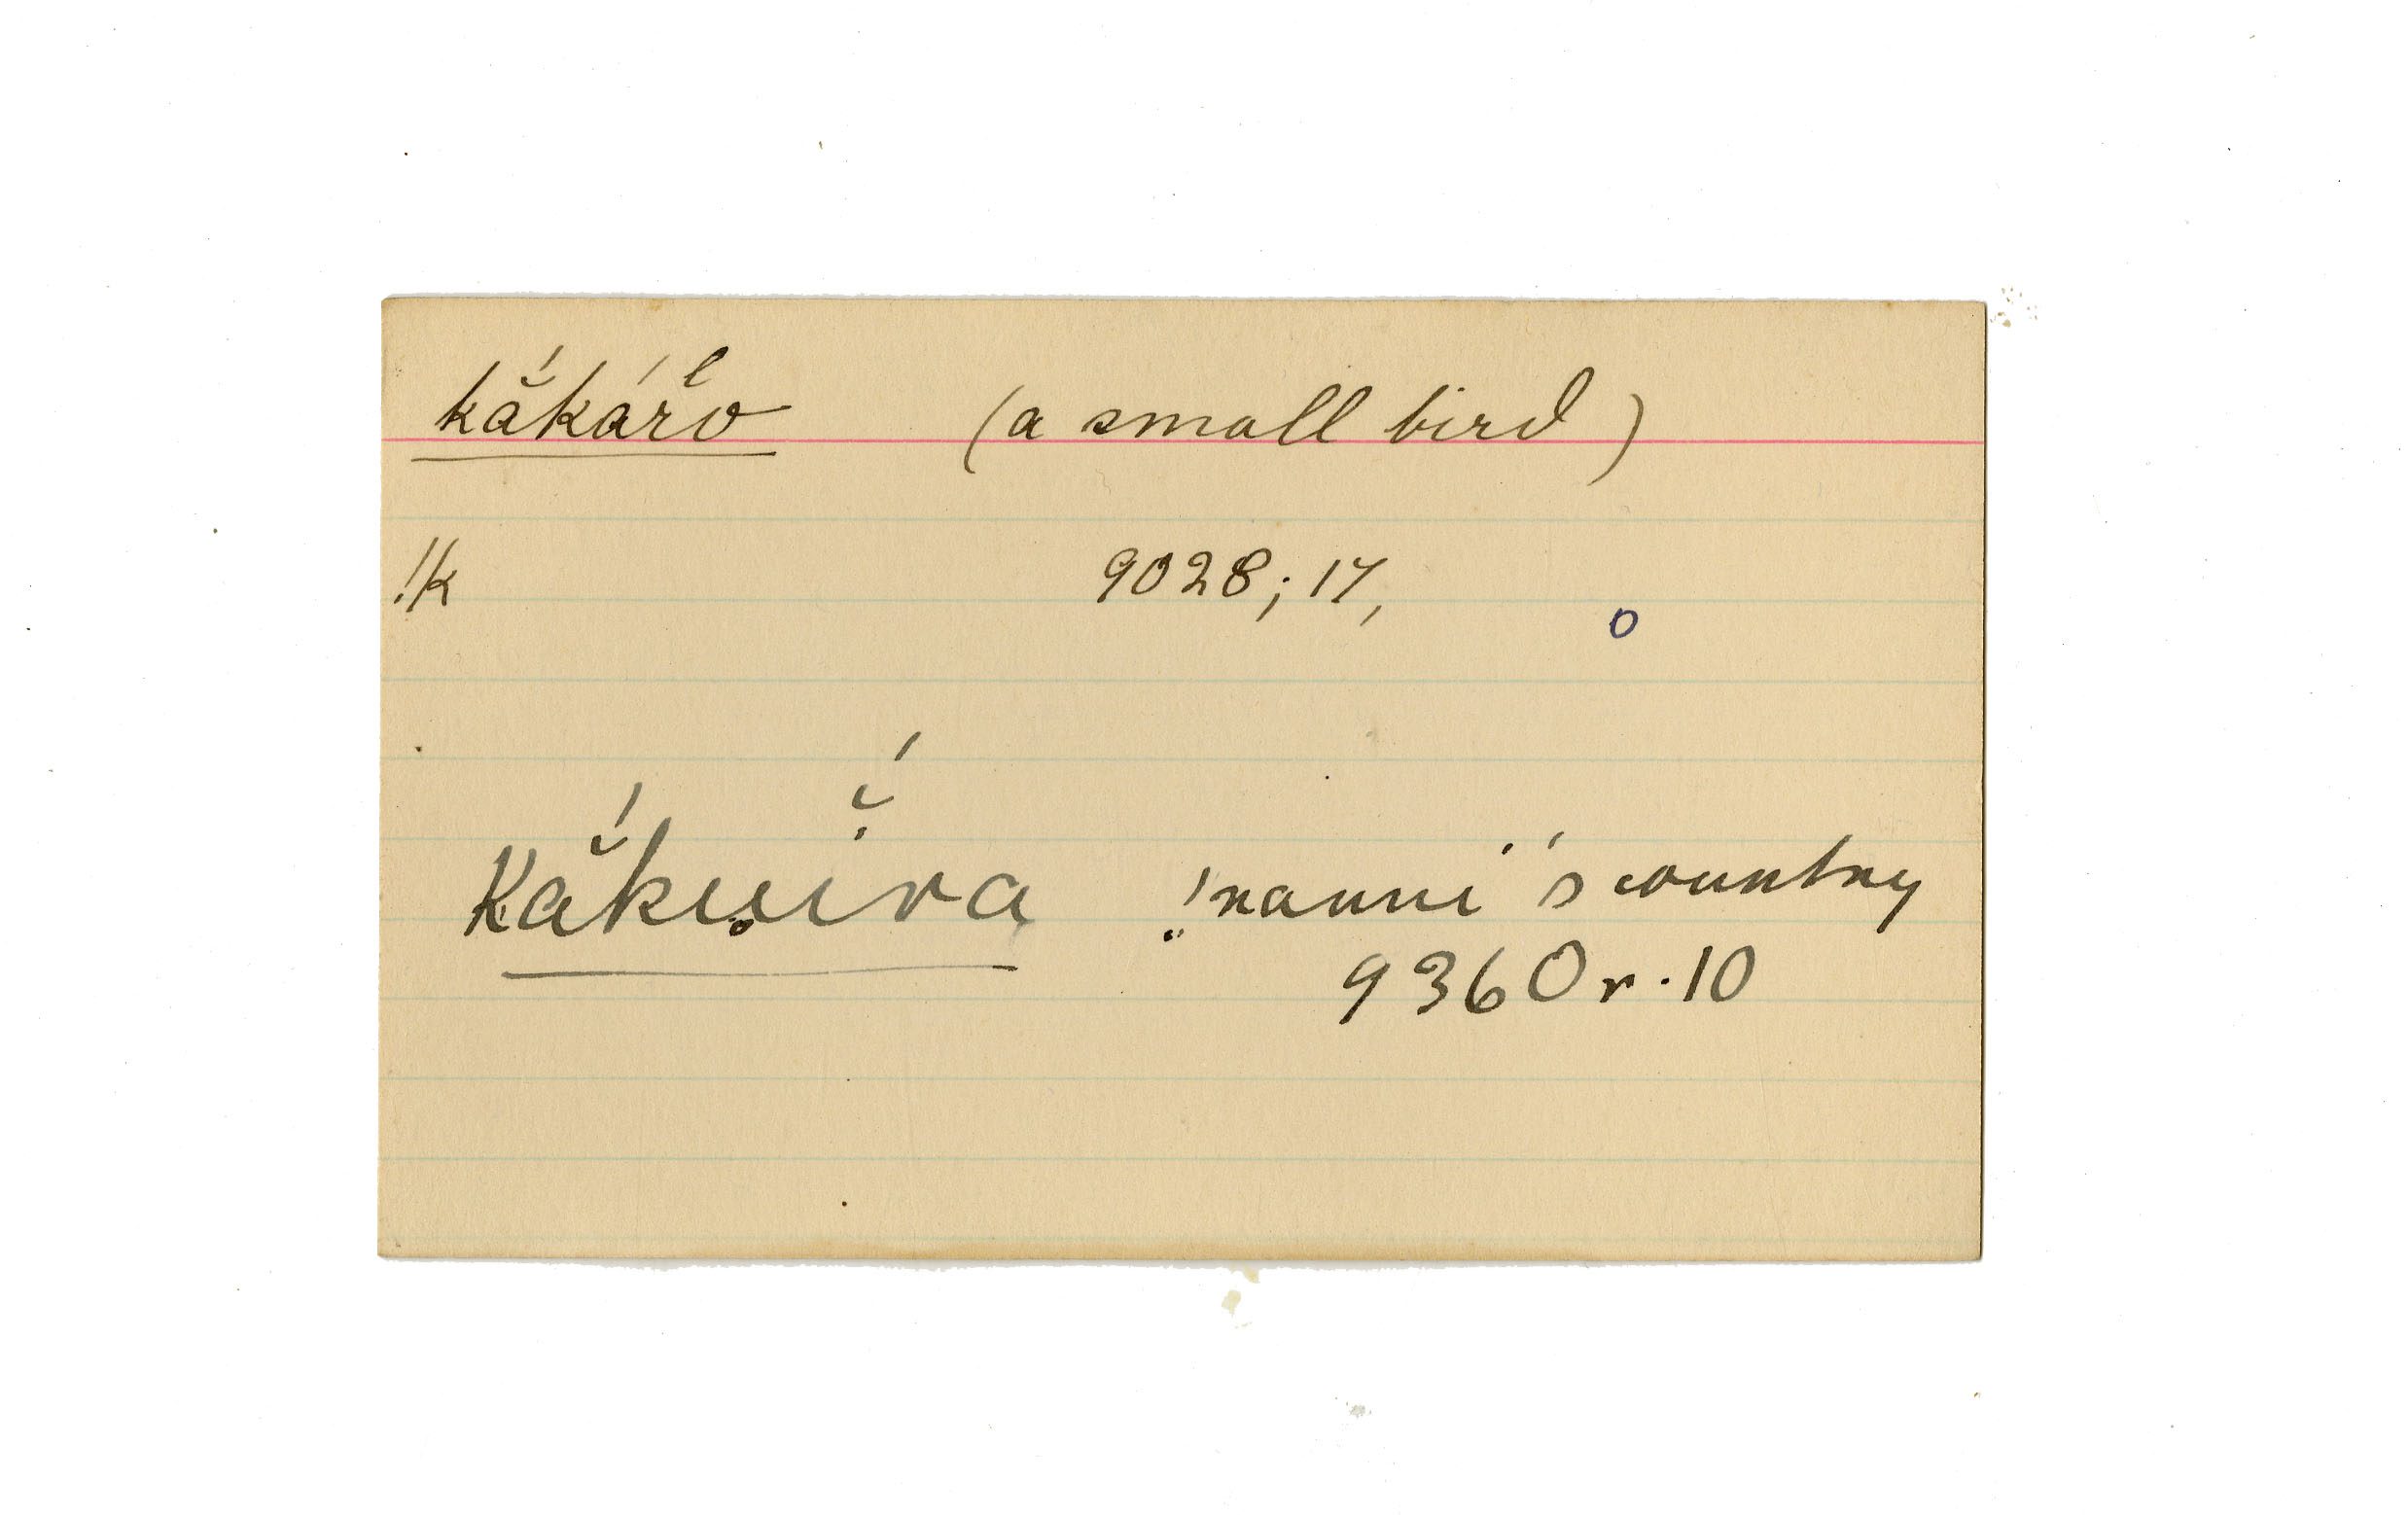 kắkárŏ́ (a small bird)
!k 9028; 17,
o
Kắku̥ĭ́va !nanni's country
9360 r. 10